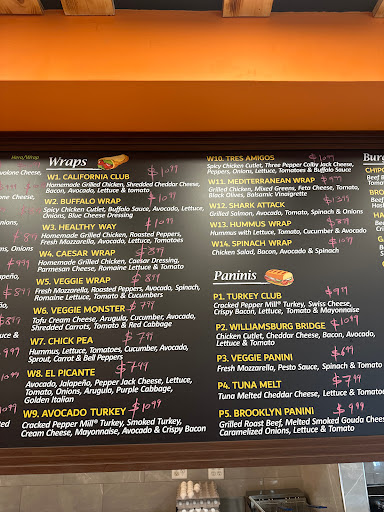 Hero/Wrap
Wraps
W1. CALIFORNIA CLUB $10.99
Homemade Grilled Chicken, Shredded Cheddar Cheese,
Bacon, Avocado, Lettuce & tomato
W2. BUFFALO WRAP $10.99
Spicy Chicken Cutlet, Buffalo Sauce, Avocado, Lettuce,
Onions, Blue Cheese Dressing
W3. HEALTHY WAY $10.99
Homemade Grilled Chicken, Roasted Peppers,
Fresh Mozzarella, Avocado, Lettuce, Tomatoes
W4. CAESAR WRAP
Homemade Grilled Chicken, Caesar Dressing,
Parmesan Cheese, Romaine Lettuce & Tomato
W5. VEGGIE WRAP
Fresh Mozzarella, Roasted Peppers, Avocado, Spinach,
Romaine Lettuce, Tomato & Cucumbers
W6. VEGGIE MONSTER
Tofu Cream Cheese, Arugula, Cucumber, Avocado,
Shredded Carrots, Tomato & Red Cabbage
W7. CHICK PEA
Hummus, Lettuce, Tomatoes, Cucumber, Avocado,
Sprout, Carrot & Bell Peppers
W8. EL PICANTE
Avocado, Jalapeño, Pepper Jack Cheese, Lettuce,
Tomato, Onions, Arugula, Purple Cabbage,
Golden Italian
W9. AVOCADO TURKEY $10.99
Cracked Pepper Mill® Turkey, Smoked Turkey,
Cream Cheese, Mayonnaise, Avocado & Crispy Bacon
W10. TRES AMIGOS $10.99
Spicy Chicken Cutlet, Three Pepper Colby Jack Cheese,
Peppers, Onions, Lettuce, Tomatoes & Buffalo Sauce
W11. MEDITERRANEAN WRAP
Grilled Chicken, Mixed Greens, Feta Cheese, Tomato,
Black Olives, Balsamic Vinaigrette
W12. SHARK ATTACK
Grilled Salmon, Avocado, Tomato, Spinach & Onions
W13. HUMMUS WRAP
Hummus with Lettuce, Tomato, Cucumber & Avocado
W14. SPINACH WRAP $10.99
Chicken Salad, Bacon, Avocado & Spinach
Paninis
P1. TURKEY CLUB
Cracked Pepper Mill® Turkey, Swiss Cheese,
Crispy Bacon, Lettuce, Tomato & Mayonnaise
P2. WILLIAMSBURG BRIDGE $10.99
Chicken Cutlet, Cheddar Cheese, Bacon, Avocado,
Lettuce & Tomato
P3. VEGGIE PANINI $6.99
Fresh Mozzarella, Pesto Sauce, Spinach & Tomato
P4. TUNA MELT $7.99
Tuna Melted Cheddar Cheese, Lettuce & Tomato
P5. BROOKLYN PANINI $9.99
Grilled Roast Beef, Melted Smoked Gouda Cheese,
Caramelized Onions, Lettuce & Tomato